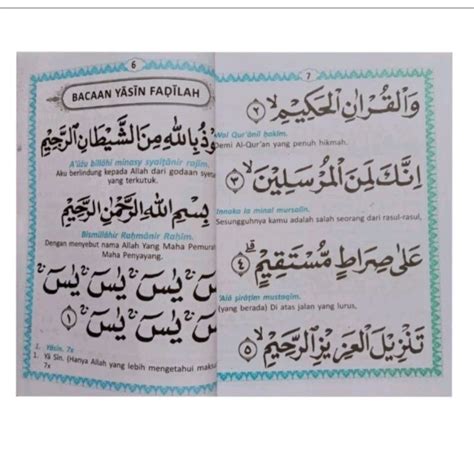 6
BACAAN YĀSĪN FAḌĪLAH
وْذُ بِاللهِ مِنَ الشَّيْطَانِ الرَّجِيْمِ
A'ūżu billāhi minasy syaiṭānir rajīm.
Aku berlindung kepada Allah dari godaan
yang terkutuk.
بِسْمِ اللهِ الرَّحْمٰنِ الرَّحِيْمِ
Bismillāhir Raḥmānir Raḥīm.
Dengan menyebut nama Allah Yang Maha
Maha Penyayang.
يٰسۤ يٰسۤ يٰسۤ يٰسۤ
يٰسۤ يٰسۤ يٰسۤ ١
1. Yāsīn. 7x
1. Yā Sīn. (Hanya Allah yang lebih mengetahui
7x
7
وَالْقُرْاٰنِ الْحَكِيْمِۙ ٢
Wal Qur'ānil ḥakīm.
Demi Al-Qur'an yang penuh hikmah.
اِنَّكَ لَمِنَ الْمُرْسَلِيْنَۙ ٣
Innaka la minal mursalīn.
Sesungguhnya kamu adalah salah seorang dari rasul-rasul,
عَلٰى صِرَاطٍ مُّسْتَقِيْمٍۗ ٤
'Alā ṣirāṭim mustaqīm.
(yang berada) Di atas jalan yang lurus,
تَنْزِيْلَ الْعَزِيْزِ الرَّحِيْمِۙ ٥